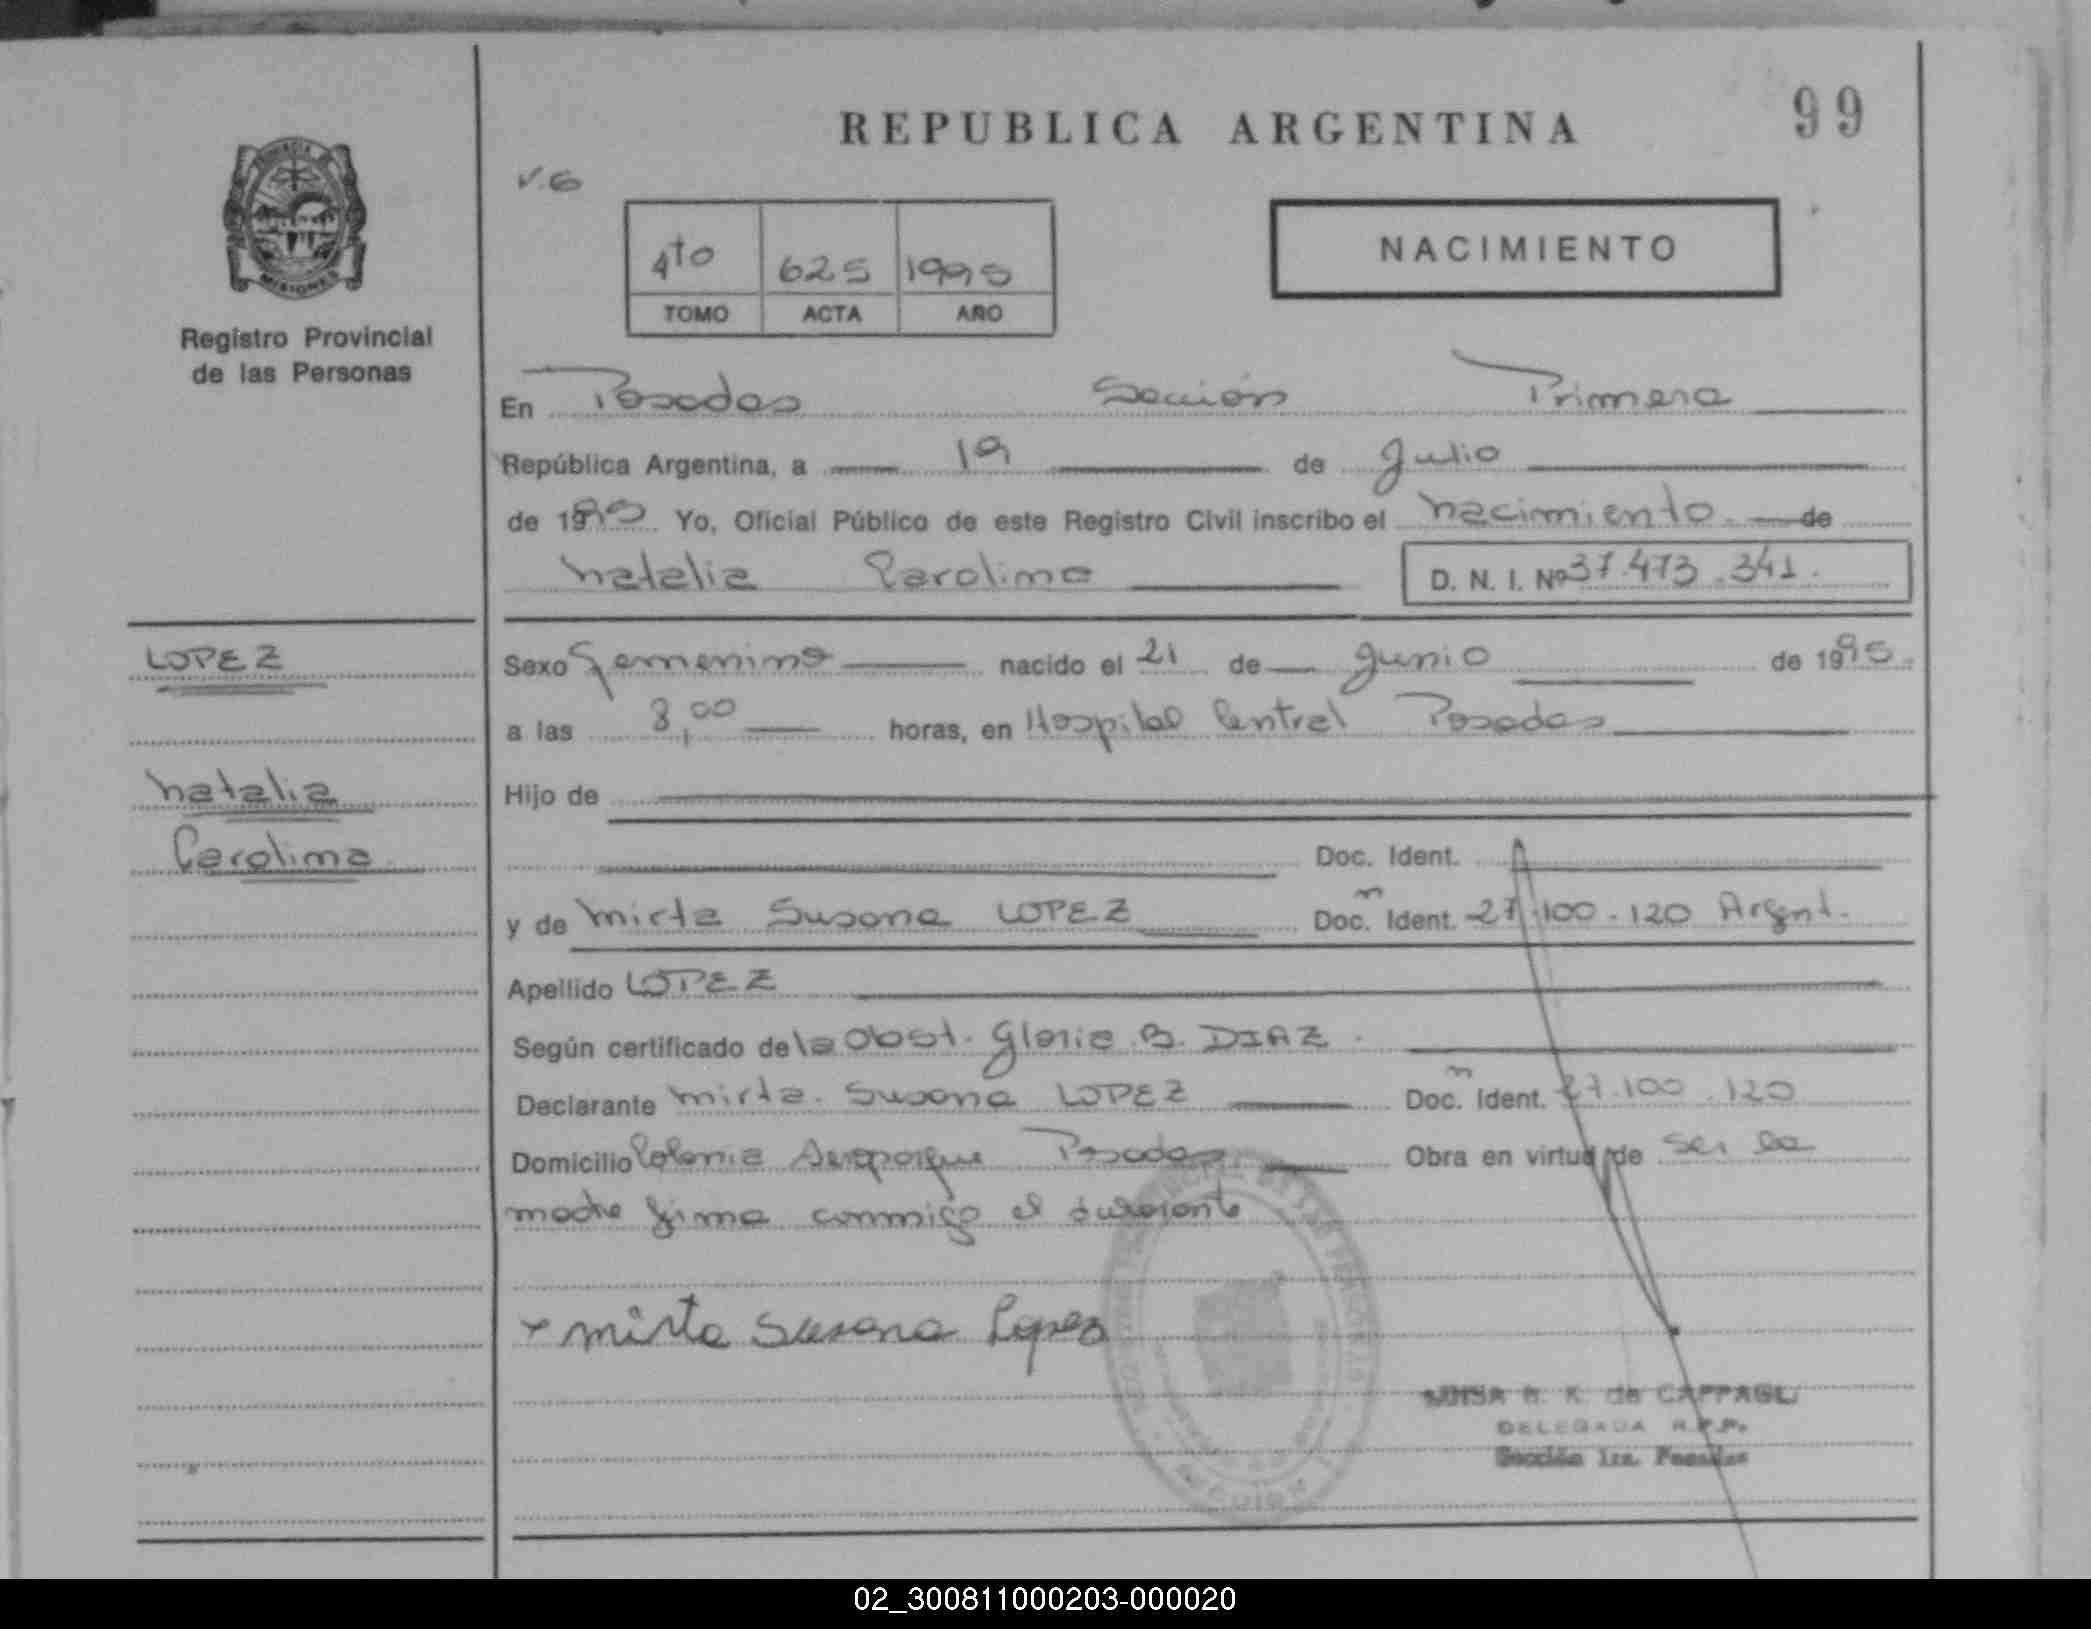 REPUBLICA ARGENTINA
99
v.6
4to 625 1995
TOMO ACTA AÑO
NACIMIENTO
MISIONES
Registro Provincial
de las Personas
En Posadas Sección Primera
República Argentina, a 19 de Julio
de 1995 Yo, Oficial Público de este Registro Civil inscribo el nacimiento de
Natalia Carolina D. N. I. Nº 37.473.341.
LOPEZ
Natalia
Carolina
Sexo Femenino nacido el 21 de Junio de 1995
a las 8,00 horas, en Hospital Central Posadas
Hijo de
Doc. Ident.
y de Mirta Susana LOPEZ Doc. Ident. 27.100.120 Argent.
Apellido LOPEZ
Según certificado de la Obst. Gloria B. DIAZ.
Declarante Mirta Susana LOPEZ Doc. Ident. 27.100.120
Domicilio Colonia Aeroparque Posadas Obra en virtud de ser la
madre firma conmigo el declarante
x Mirta Susana Lopez
B. K. de CAPPAGLI
DELEGADA R.P.P.
Sección 1ra. Posadas
02_300811000203-000020